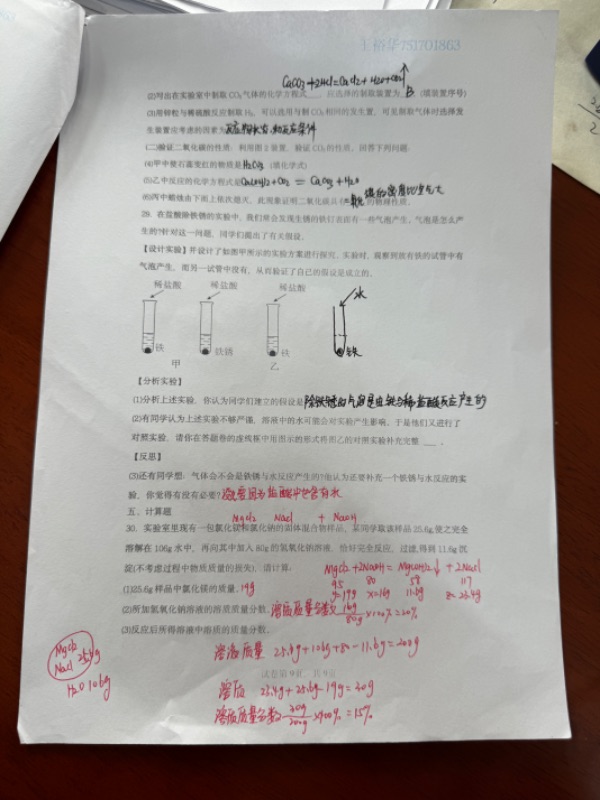 王裕华751701863
CaCO₃+2HCl=CaCl₂+H₂O+CO₂↑
(2)写出在实验室中制取CO₂气体的化学方程式____, 应选择的制取装置为 B (填装置序号)
(3)用锌粒与稀硫酸反应制取H₂, 可以选用与制CO₂相同的发生置, 可见制取气体时选择发
生装置应考虑的因素为 反应物状态和反应条件
(二)验证二氧化碳的性质: 利用图2装置, 验证CO₂的性质, 回答下列问题:
(4)甲中使石蕊变红的物质是 H₂CO₃ (填化学式)
(5)乙中反应的化学方程式是 Ca(OH)₂+CO₂=CaCO₃+H₂O
(6)丙中蜡烛由下而上依次熄灭, 此现象证明二氧化碳具有 的密度比空气大 的物理性质。
29. 在盐酸除铁锈的实验中, 我们常会发现生锈的铁钉表面有一些气泡产生。气泡是怎么产
生的?针对这一问题, 同学们提出了有关假设。
【设计实验】并设计了如图甲所示的实验方案进行探究。实验时, 观察到放有铁的试管中有
气泡产生, 而另一试管中没有, 从而验证了自己的假设是成立的。
稀盐酸 稀盐酸 稀盐酸 水
铁 铁锈 铁 铁
甲 乙
【分析实验】
(1)分析上述实验, 你认为同学们建立的假设是 除铁锈的气泡是由铁与稀盐酸反应产生的
(2)有同学认为上述实验不够严谨, 溶液中的水可能会对实验产生影响。于是他们又进行了
对照实验, 请你在答题卷的虚线框中用图示的形式将图乙的对照实验补充完整 ____ 。
【反思】
(3)还有同学想: 气体会不会是铁锈与水反应产生的?他认为还要补充一个铁锈与水反应的实
验, 你觉得有没有必要? 没必要因为盐酸中也含有水
五、计算题
MgCl₂ NaCl + NaOH
30. 实验室里现有一包氯化镁和氯化钠的固体混合物样品, 某同学取该样品25.6g,使之完全
溶解在106g水中, 再向其中加入80g的氢氧化钠溶液, 恰好完全反应, 过滤,得到11.6g沉
淀(不考虑过程中物质质量的损失)。请计算:
MgCl₂+2NaOH=Mg(OH)₂↓+2NaCl
95 80 58 117
(1)25.6g样品中氯化镁的质量。19g
y=19g x=16g 11.6g z=23.4g
(2)所加氢氧化钠溶液的溶质质量分数。溶质质量分数为 16g/80g ×100%=20%
(3)反应后所得溶液中溶质的质量分数。
MgCl₂
NaCl 25.6g
H₂O 106g
溶液质量 25.6g+106g+80-11.6g=200g
试卷第9页, 共9页
溶质 23.4g+25.6g-19g=30g
溶质质量分数为 30g/200g ×100%=15%